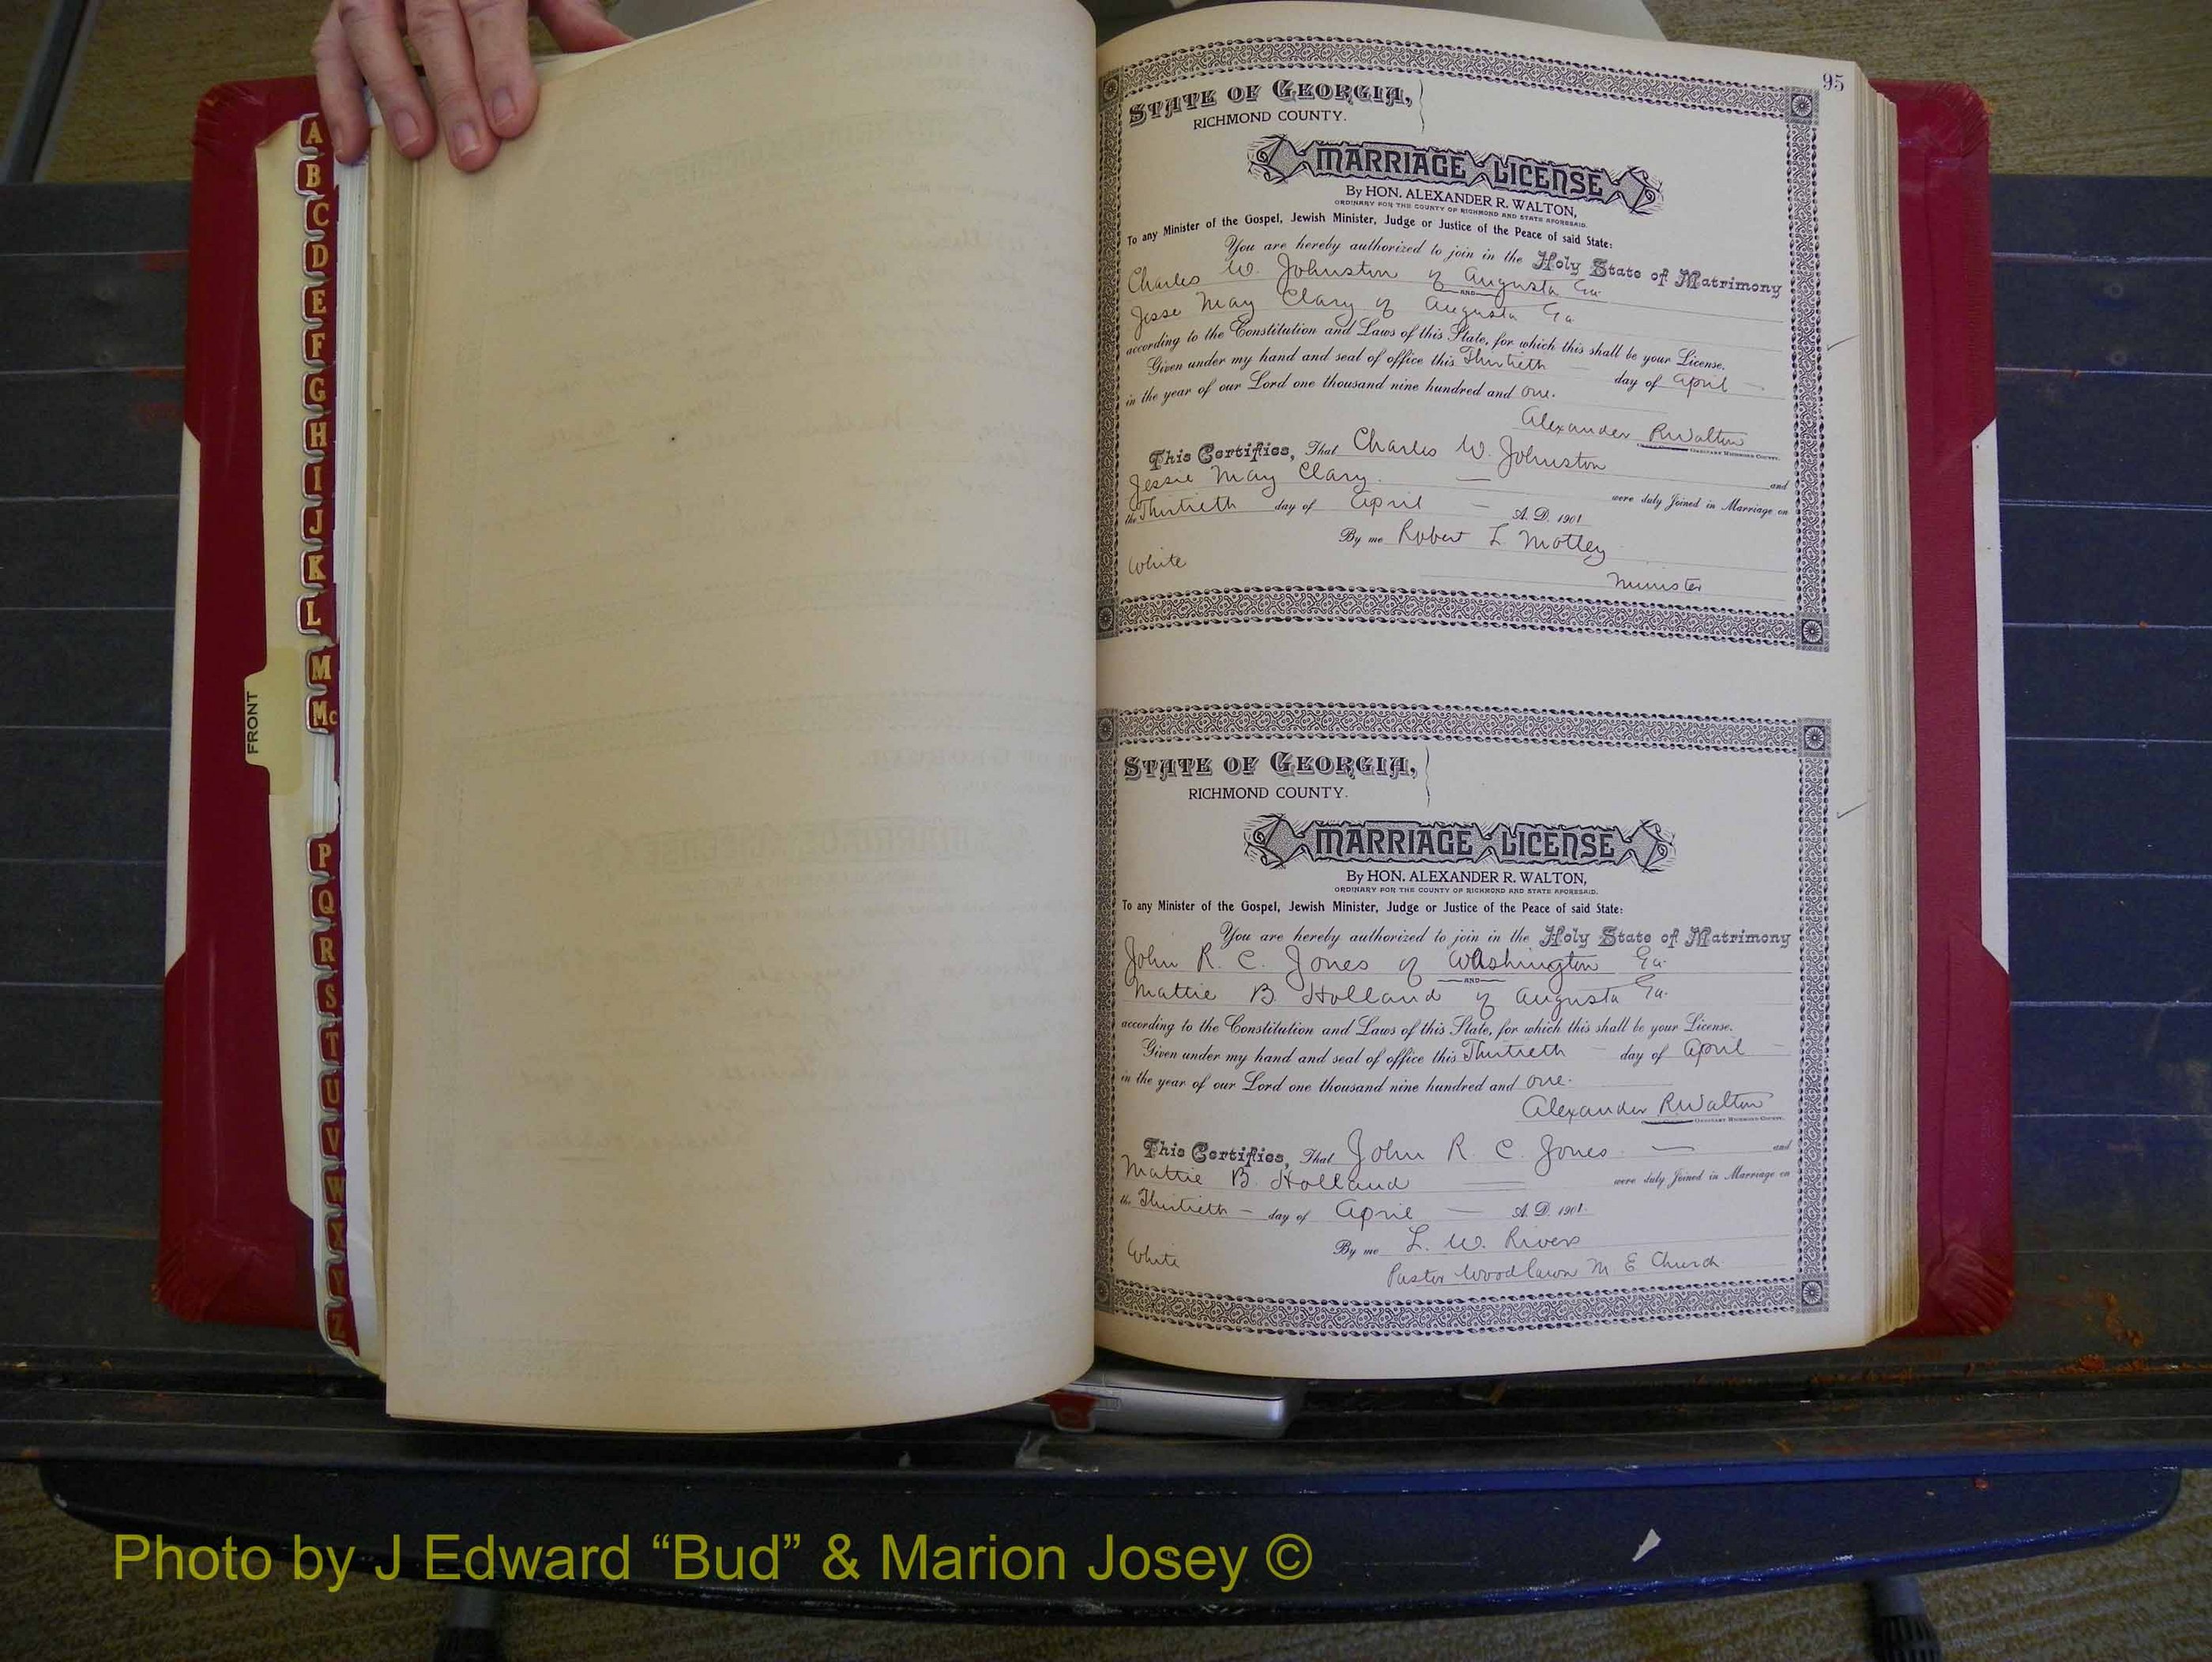 A
B
C
D
E
F
G
H
I
J
K
L
M
Mc
P
Q
R
S
T
U
V
W
X
Y
Z
FRONT
95
STATE OF GEORGIA,
RICHMOND COUNTY.
MARRIAGE LICENSE
By HON. ALEXANDER R. WALTON,
ORDINARY FOR THE COUNTY OF RICHMOND AND STATE AFORESAID.
To any Minister of the Gospel, Jewish Minister, Judge or Justice of the Peace of said State:
You are hereby authorized to join in the Holy State of Matrimony
Charles W. Johnston of Augusta Ga
AND
Jesse May Clary of Augusta Ga
according to the Constitution and Laws of this State, for which this shall be your License.
Given under my hand and seal of office this Thirtieth day of April
in the year of our Lord one thousand nine hundred and one.
Alexander R Walton
ORDINARY RICHMOND COUNTY.
This Certifies, That Charles W. Johnston and
Jessie May Clary were duly Joined in Marriage on
the Thirtieth day of April A. D. 1901
By me Robert L Motley
White
Minister
STATE OF GEORGIA,
RICHMOND COUNTY.
MARRIAGE LICENSE
By HON. ALEXANDER R. WALTON,
ORDINARY FOR THE COUNTY OF RICHMOND AND STATE AFORESAID.
To any Minister of the Gospel, Jewish Minister, Judge or Justice of the Peace of said State:
You are hereby authorized to join in the Holy State of Matrimony
John R. C. Jones of Washington Ga
AND
Mattie B Holland of Augusta Ga.
according to the Constitution and Laws of this State, for which this shall be your License.
Given under my hand and seal of office this Thirtieth day of April
in the year of our Lord one thousand nine hundred and one.
Alexander R Walton
ORDINARY RICHMOND COUNTY.
This Certifies, That John R. C. Jones and
Mattie B. Holland were duly Joined in Marriage on
the Thirtieth day of April A. D. 1901.
By me L. W. Rivers
White
Pastor Woodlawn M E Church
Photo by J Edward “Bud” & Marion Josey ©